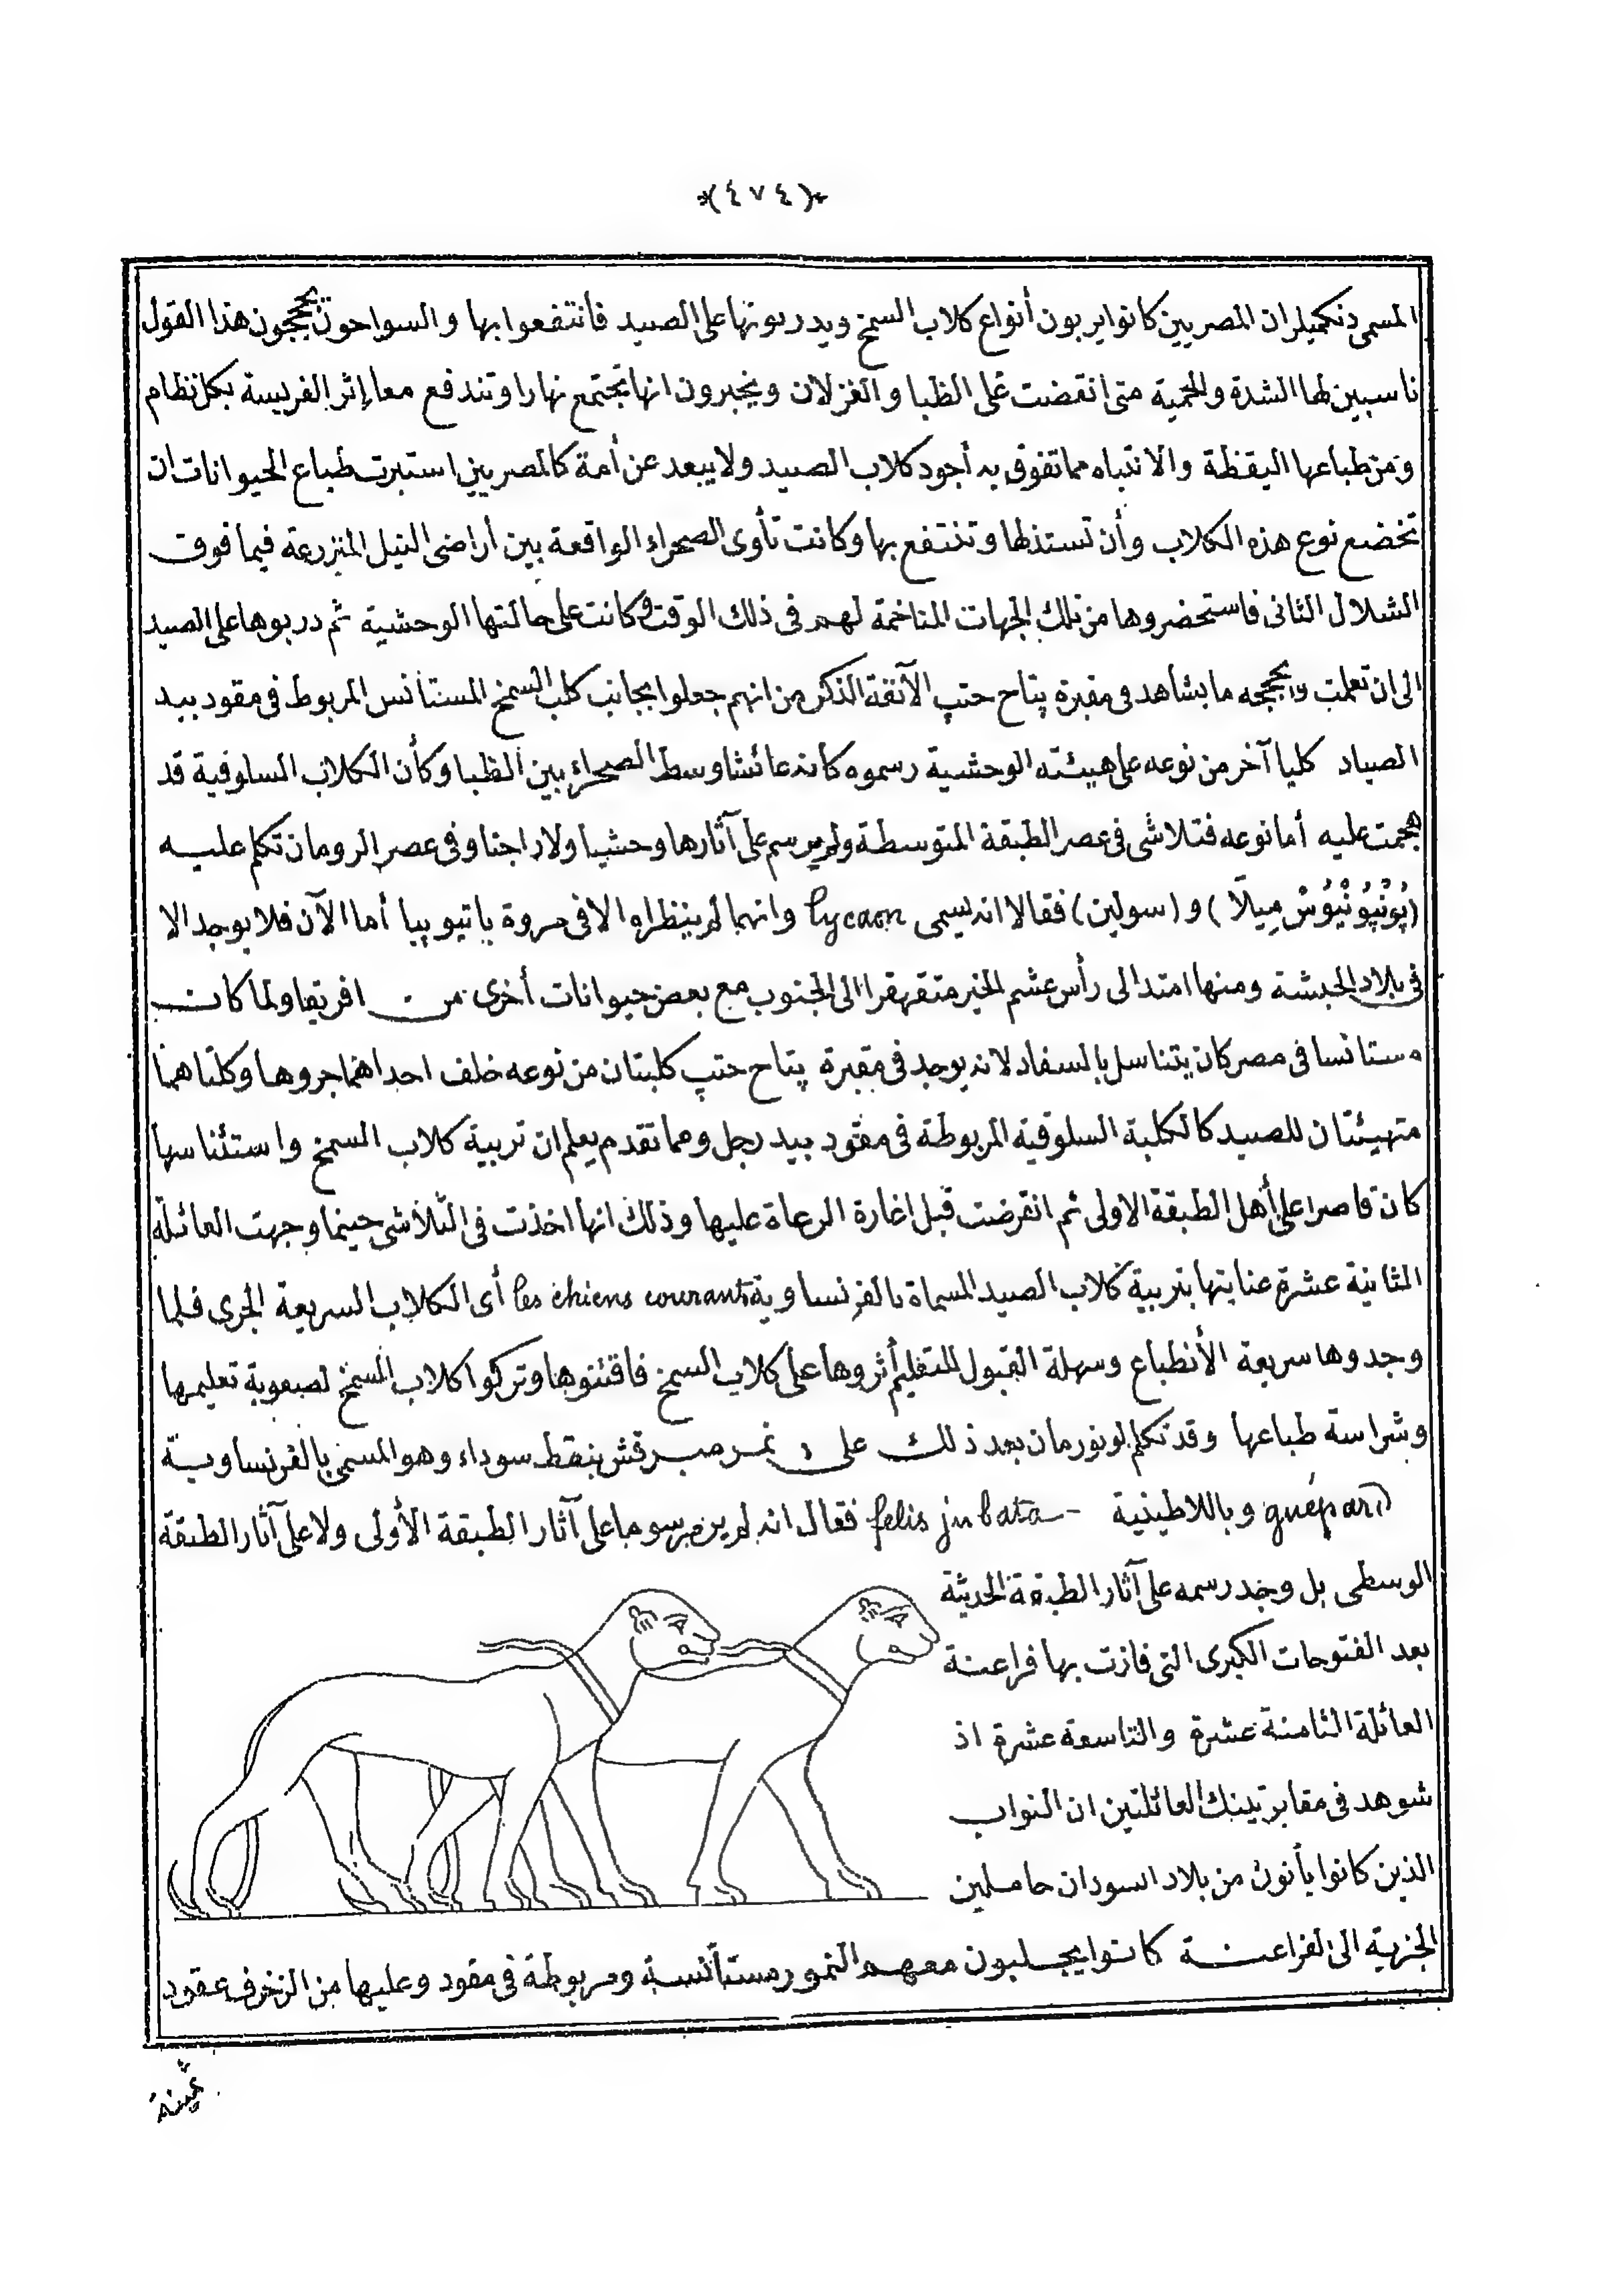 *(٤٧٤)*
المسمى دنكميلران المصريين كانوا يربون أنواع كلاب السمخ ويدربونها على الصيد فانتفعوا بها والسواحون يحججون هذا القول
ناسبين لها الشدة والحمية متى انقضت على الظبا والغزلان ويخبرون انها تجتمع نهارا وتندفع معا إثر الفريسة بكل نظام
ومن طباعها اليقظة والانتباه مما تفوق به أجود كلاب الصيد ولا يبعد عن أمة كالمصريين استبرت طباع الحيوانات ان
تخضع نوع هذه الكلاب وأن تستذلها وتنتفع بها وكانت تأوى الصحراء الواقعة بين أراضى النيل المنزرعة فيما فوق
الشلال الثانى فاستحضروها من تلك الجهات المتاخمة لهم فى ذلك الوقت وكانت على حالتها الوحشية ثم دربوها على الصيد
الى ان تعلمت ويحججه ما يشاهد فى مقبرة پتاح حتپ الآنفة الذكر من انهم جعلوا بجانب كلب السمخ المستأنس المربوط فى مقود بيد
الصياد كلبا آخر من نوعه على هيئته الوحشية رسموه كانه عائشا وسط الصحراء بين الظبا وكأن الكلاب السلوقية قد
هجمت عليه أما نوعه فتلاشى فى عصر الطبقة المتوسطة ولم يرسم على آثارها وحشيا ولا داجنا وفى عصر الرومان تكلم عليه
(پُونْپُونْيُوسْ مِيلَا) و (سولين) فقالا انه يسمى lycaon وانهما لم ينظراه الا فى مروة باتيوپيا أما الآن فلا يوجد الا
فى بلاد الحبشة ومنها امتد الى رأس عشم الخير متقهقرا الى الجنوب مع بعض حيوانات أخرى من افريقا ولما كان
مستانسا فى مصر كان يتناسل بالسفاد لانه يوجد فى مقبرة پتاح حتپ كلبتان من نوعه خلف احداهما جروها وكلتاهما
متهيئتان للصيد كالكلبة السلوقية المربوطة فى مقود بيد رجل ومما تقدم يعلم ان تربية كلاب السمخ واستئناسها
كان قاصرا على أهل الطبقة الاولى ثم انقرضت قبل اغارة الرعاة عليها وذلك انها اخذت فى التلاشى حينما وجهت العائلة
الثانية عشرة عنايتها بتربية كلاب الصيد المسماة بالفرنساوية les chiens courants أى الكلاب السريعة الجرى فلما
وجدوها سريعة الأنطباع وسهلة القبول للتعليم أثروها على كلاب السمخ فاقتنوها وتركوا كلاب السمخ لصعوبة تعليمها
وشراسة طباعها وقد تكلم لونورمان بعد ذلك على نمر مبرقش بنقط سوداء وهو المسمى بالفرنساوية
guépard وباللاطينية - felis jubata فقال انه لم ير مرسوما على آثار الطبقة الأولى ولا على آثار الطبقة
الوسطى بل وجد رسمه على آثار الطبقة الحديثة
بعد الفتوحات الكبرى التى فازت بها فراعنة
العائلة الثامنة عشرة والتاسعة عشرة اذ
شوهد فى مقابر تينك العائلتين ان النواب
الذين كانوا يأتون من بلاد السودان حاملين
الجزية الى الفراعنة كانوا يجلبون معهم النمور مستأنسة ومربوطة فى مقود وعليها من الزخرف عقود
ثمينة